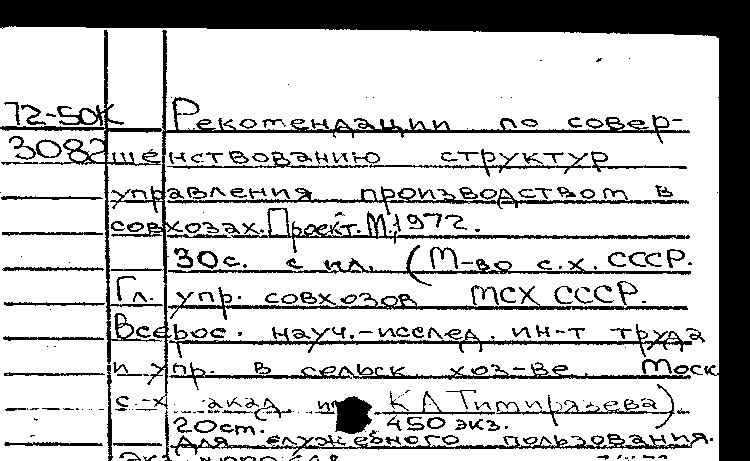 72-50К Рекомендации по совер-
3082 шенствованию структур
управления производством в
совхозах. Проект. М., 1972.
30с. с ил. (М-во с.х. СССР.
Гл. упр. совхозов МСХ СССР.
Всерос. науч.-исслед. ин-т труда
и упр. в сельск хоз-ве. Моск
с-х акад. К А Тимирязева).
20см. 450 экз.
Для служебного пользования.